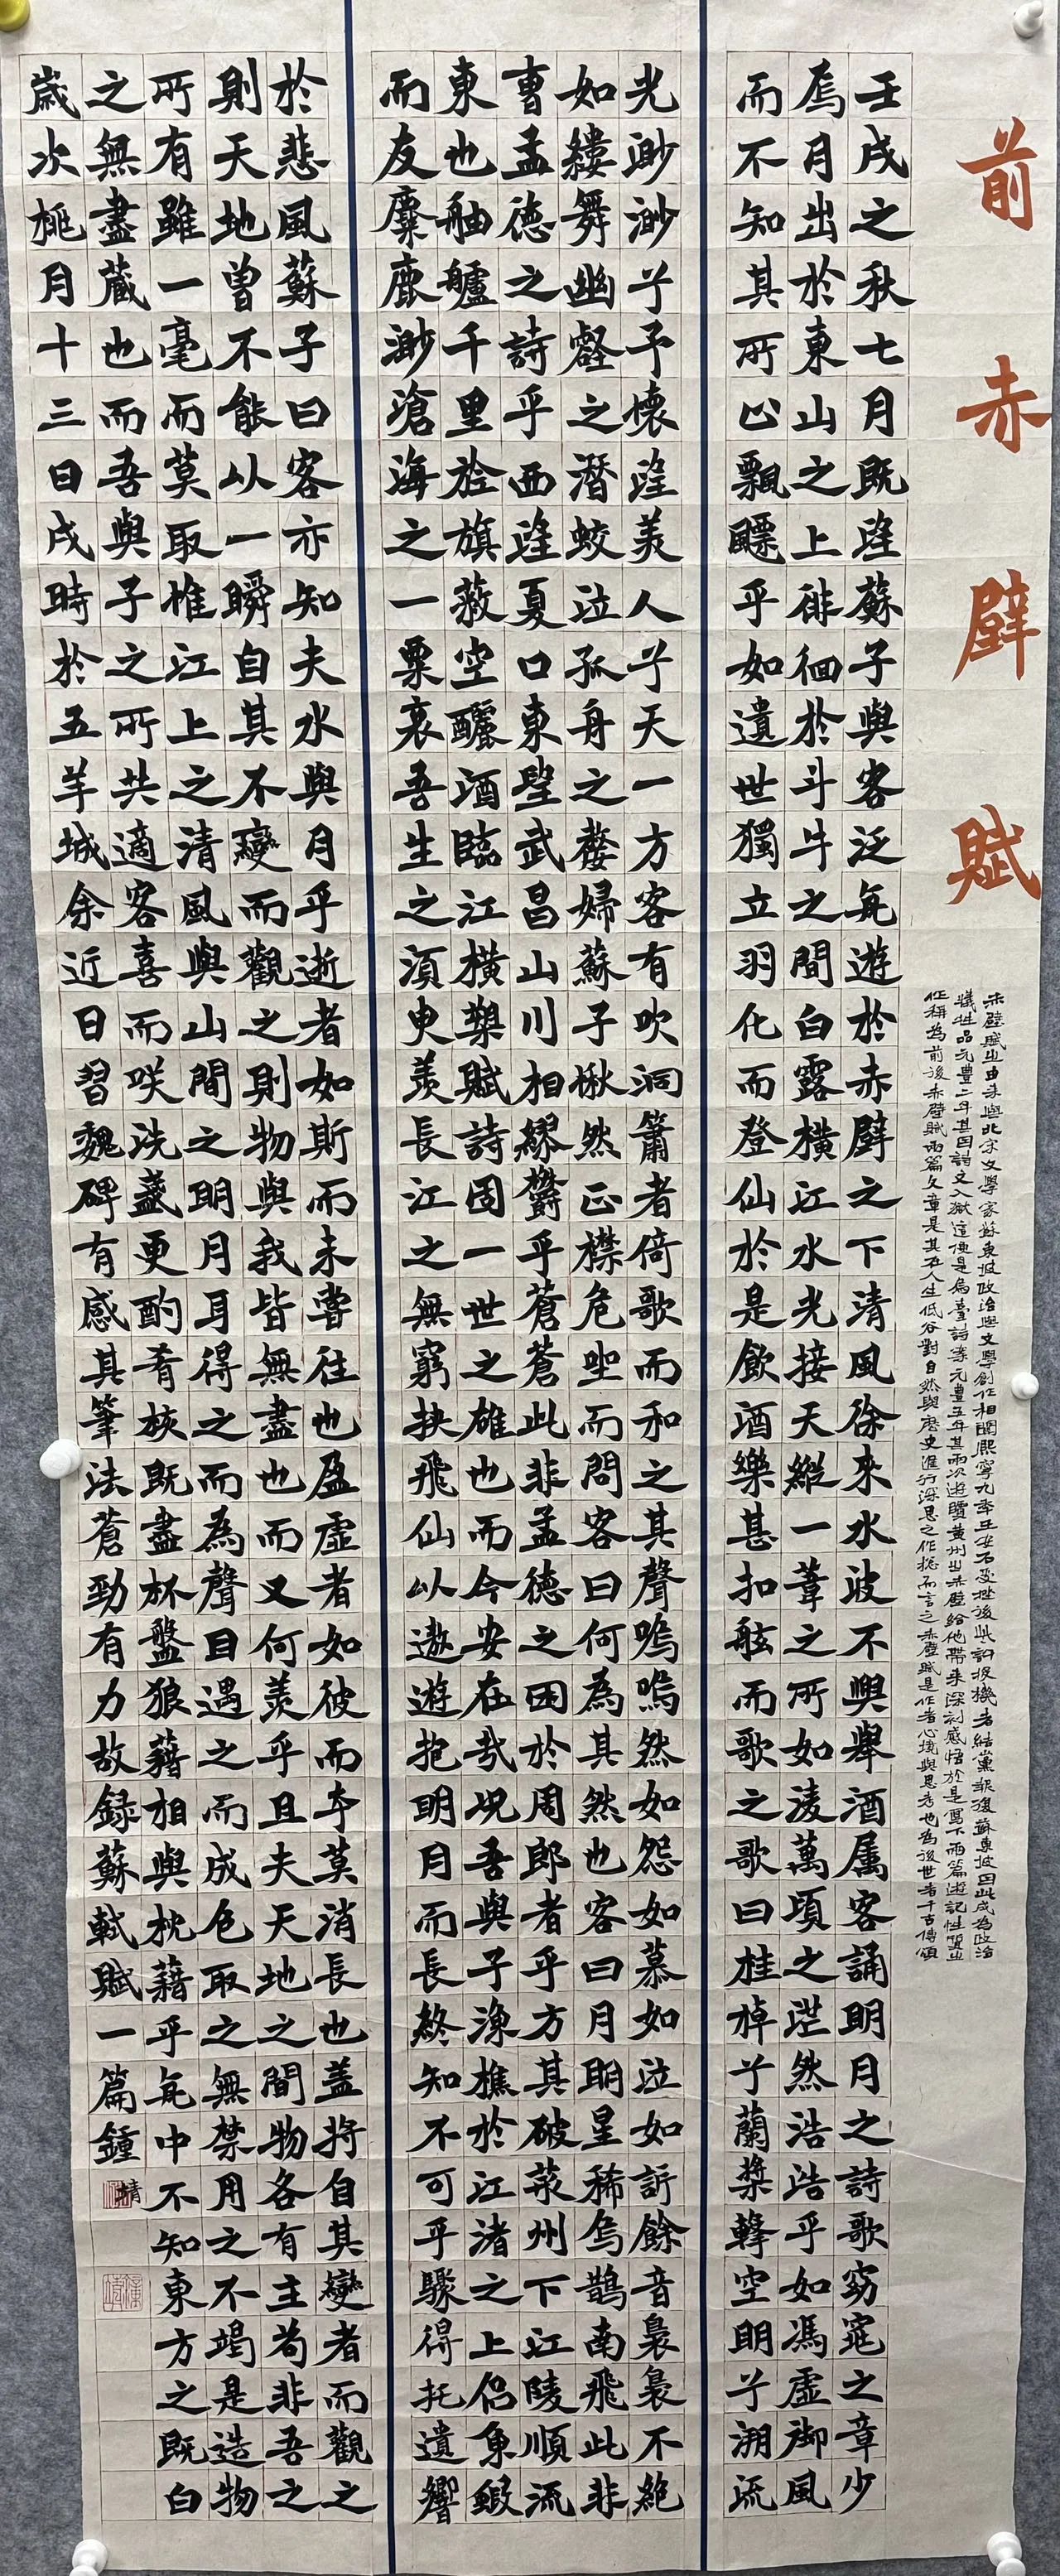 前赤壁賦
赤壁賦之由來與北宋文學家蘇東坡政治與文學創作相關熙寧九年王安石受挫後些許投機者結黨報復蘇東坡因此成為政治
犧牲品元豐二年其因詩文入獄這便是烏臺詩案元豐五年其兩次遊覽黃州之赤壁給他帶來深刻感悟於是寫下兩篇遊記性質之
作稱為前後赤壁賦兩篇文章是其在人生低谷對自然與歷史進行深思之作總而言之赤壁賦是作者心境與思考也為後世者千古傳頌
壬戌之秋七月既望蘇子與客泛舟遊於赤壁之下清風徐來水波不興舉酒属客誦明月之詩歌窈窕之章少
焉月出於東山之上徘徊於斗牛之間白露橫江水光接天縱一葦之所如淩萬頃之茫然浩浩乎如馮虛御風
而不知其所止飄飄乎如遺世獨立羽化而登仙於是飲酒樂甚扣舷而歌之歌曰桂棹兮蘭槳擊空明兮溯流
光渺渺兮予懷望美人兮天一方客有吹洞簫者倚歌而和之其聲嗚嗚然如怨如慕如泣如訴餘音裊裊不絕
如縷舞幽壑之潛蛟泣孤舟之嫠婦蘇子愀然正襟危坐而問客曰何為其然也客曰月明星稀烏鵲南飛此非
曹孟德之詩乎西望夏口東望武昌山川相繆鬱乎蒼蒼此非孟德之困於周郎者乎方其破荊州下江陵順流
東也舳艫千里於旗蔽空釃酒臨江橫槊賦詩固一世之雄也而今安在哉況吾與子漁樵於江渚之上侶魚蝦
而友麋鹿渺滄海之一粟哀吾生之須臾羨長江之無窮挾飛仙以遨遊抱明月而長終知不可乎驟得托遺響
於悲風蘇子曰客亦知夫水與月乎逝者如斯而未嘗往也盈虛者如彼而卒莫消長也蓋將自其變者而觀之
則天地曾不能以一瞬自其不變而觀之則物與我皆無盡也而又何羨乎且夫天地之間物各有主苟非吾之
所有雖一毫而莫取惟江上之清風與山間之明月耳得之而為聲目遇之而成色取之無禁用之不竭是造物
之無盡藏也而吾與子之所共適客喜而笑洗盞更酌肴核既盡杯盤狼藉相與枕藉乎舟中不知東方之既白
歲次桃月十三日戌時於五羊城余近日習魏碑有感其筆法蒼勁有力故錄蘇軾賦一篇鍾靖